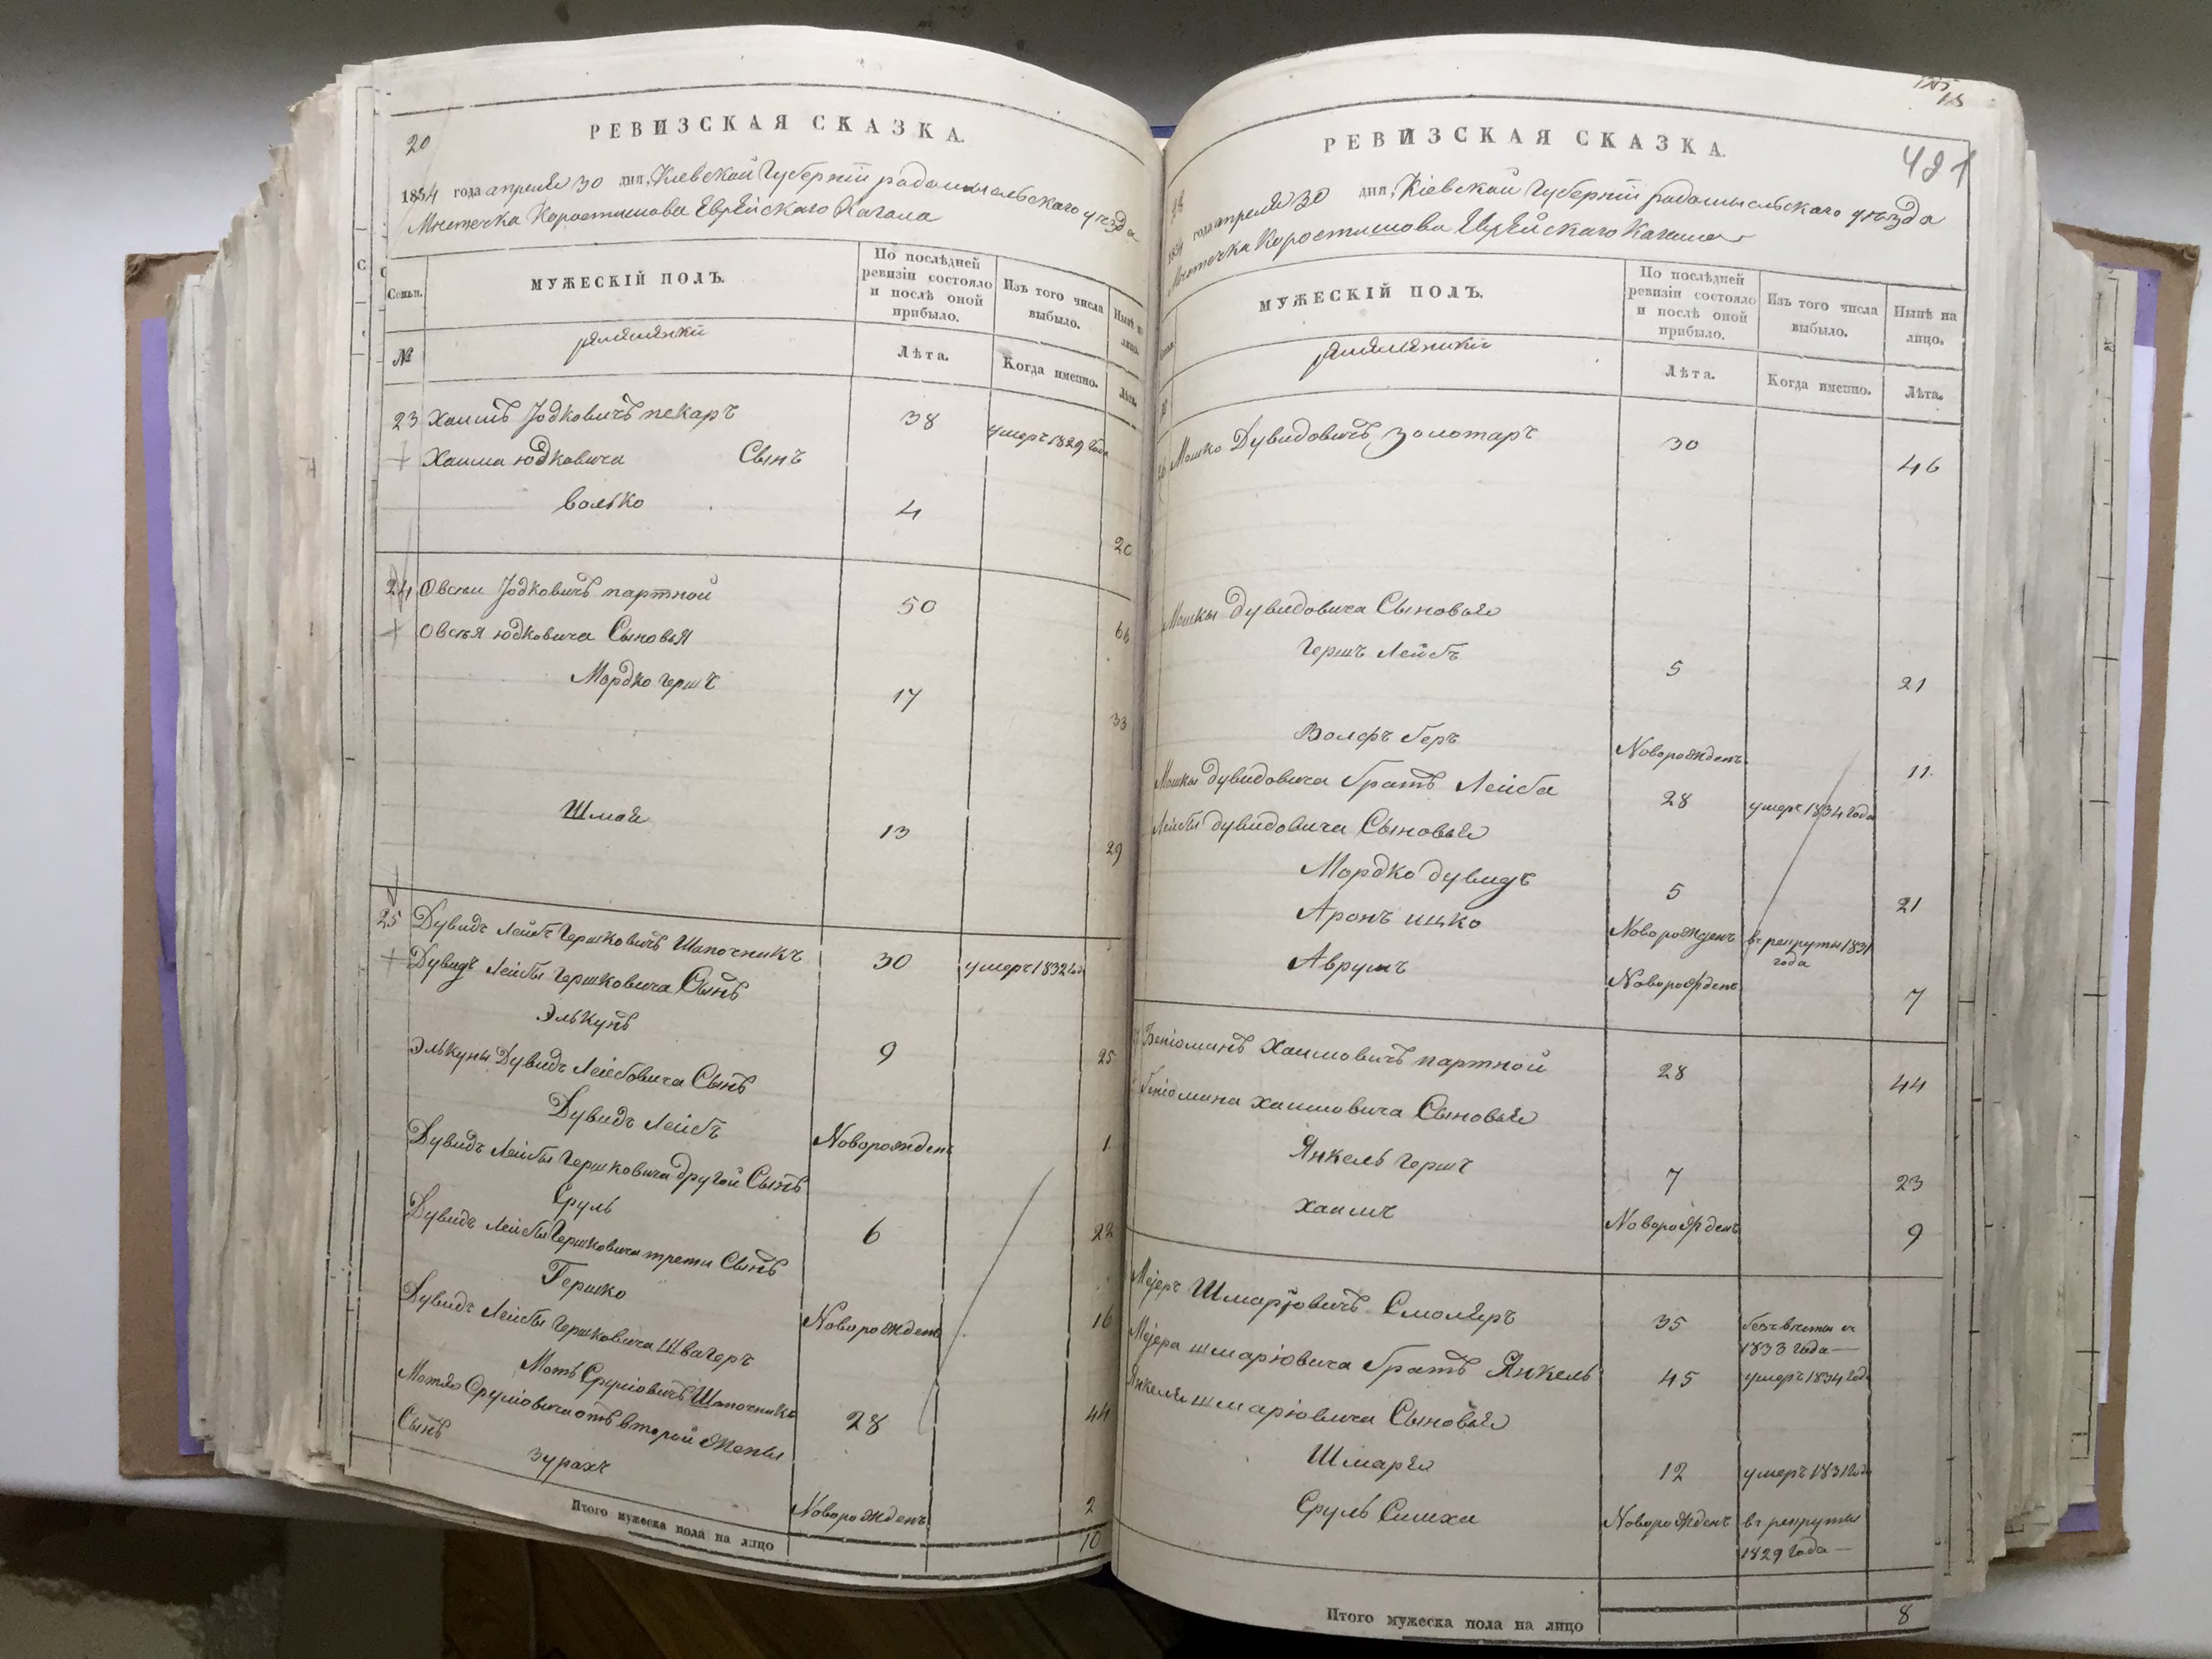 20
РЕВИЗСКАЯ СКАЗКА.
1834 года апреля 30 дня, Киевской Губернiи радомысльского уезда
Мистечка Коростишова Еврейского Кагала
Семьи. МУЖЕСКІЙ ПОЛЪ. По послѣдней ревизіи состояло и послѣ оной прибыло. Изъ того числа выбыло. Нынѣ на лицо.
№ ремесленники Лѣта. Когда именно. Лѣта.
23 Хаимъ Јодковичъ пекаръ 38 умеръ 1829 года
Хаима юдковича Сынъ
волько 4 20
24 Овсѣи Јодковичъ партной 50 66
Овсѣя юдковича Сыновья
Мордко гершъ 17 33
Шмоя 13 29
25 Дувидъ Лейбъ Гершковичъ Шапочникъ 30 умеръ 1832 года
Дувидъ Лейбы Гершковича Сынъ
Элькунъ 9 25
Элькуны Дувидъ Лейбовича Сынъ
Дувидъ Лейбъ Новорожденъ 1
Дувидъ Лейбы Гершковича другой Сынъ
Сруль 6 22
Дувидъ Лейбы Гершковича трети Сынъ
Гершко Новорожденъ 16
Дувидъ Лейбы Гершковича Швагеръ
Мотъ Сруліовичъ Шапочникъ 28 44
Мотя Сруліовича отъ второй Жены
Сынъ
Зурахъ Новорожденъ 2
Итого мужеска пола на лицо 10
481
РЕВИЗСКАЯ СКАЗКА.
1834 года апреля 30 дня, Кіевской Губернiи радомысльского уезда
Мистечка Коростишова Еврейского Кагала
МУЖЕСКІЙ ПОЛЪ. По послѣдней ревизіи состояло и послѣ оной прибыло. Изъ того числа выбыло. Нынѣ на лицо.
ремесленники Лѣта. Когда именно. Лѣта.
26 Мошко Дувидовичъ золотаръ 30 46
Мошки Дувидовича Сыновья
Гершъ Лейбъ 5 21
Волфъ беръ Новорожденъ 11
Мошки дувидовича братъ Лейба 28 умеръ 1834 года
Лейбы дувидовича Сыновья
Мордко дувидъ 5 21
Аронъ ицко Новорожденъ въ рекруты 1831
года
Аврумъ Новорожденъ 7
Беніоминъ Хаимовичъ партной 28 44
беніомина хаимовича Сыновья
Янкель гершъ 7 23
Хаимъ Новорожденъ 9
Меjеръ Шмаріовичъ Смоляръ 35 безъ вести съ
1833 года
Меjера шмаріовича братъ Янкель 45 умеръ 1834 года
Янкеля шмаріовича Сыновья
Шмаря 12 умеръ 1831 года
Сруль Симха Новорожденъ въ рекруты
1829 года
Итого мужеска пола на лицо 8